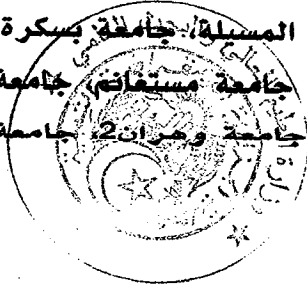 المسيلة، جامعة بسكرة
جامعة مستغانم، جامعة
جامعة وهران2، جامعة